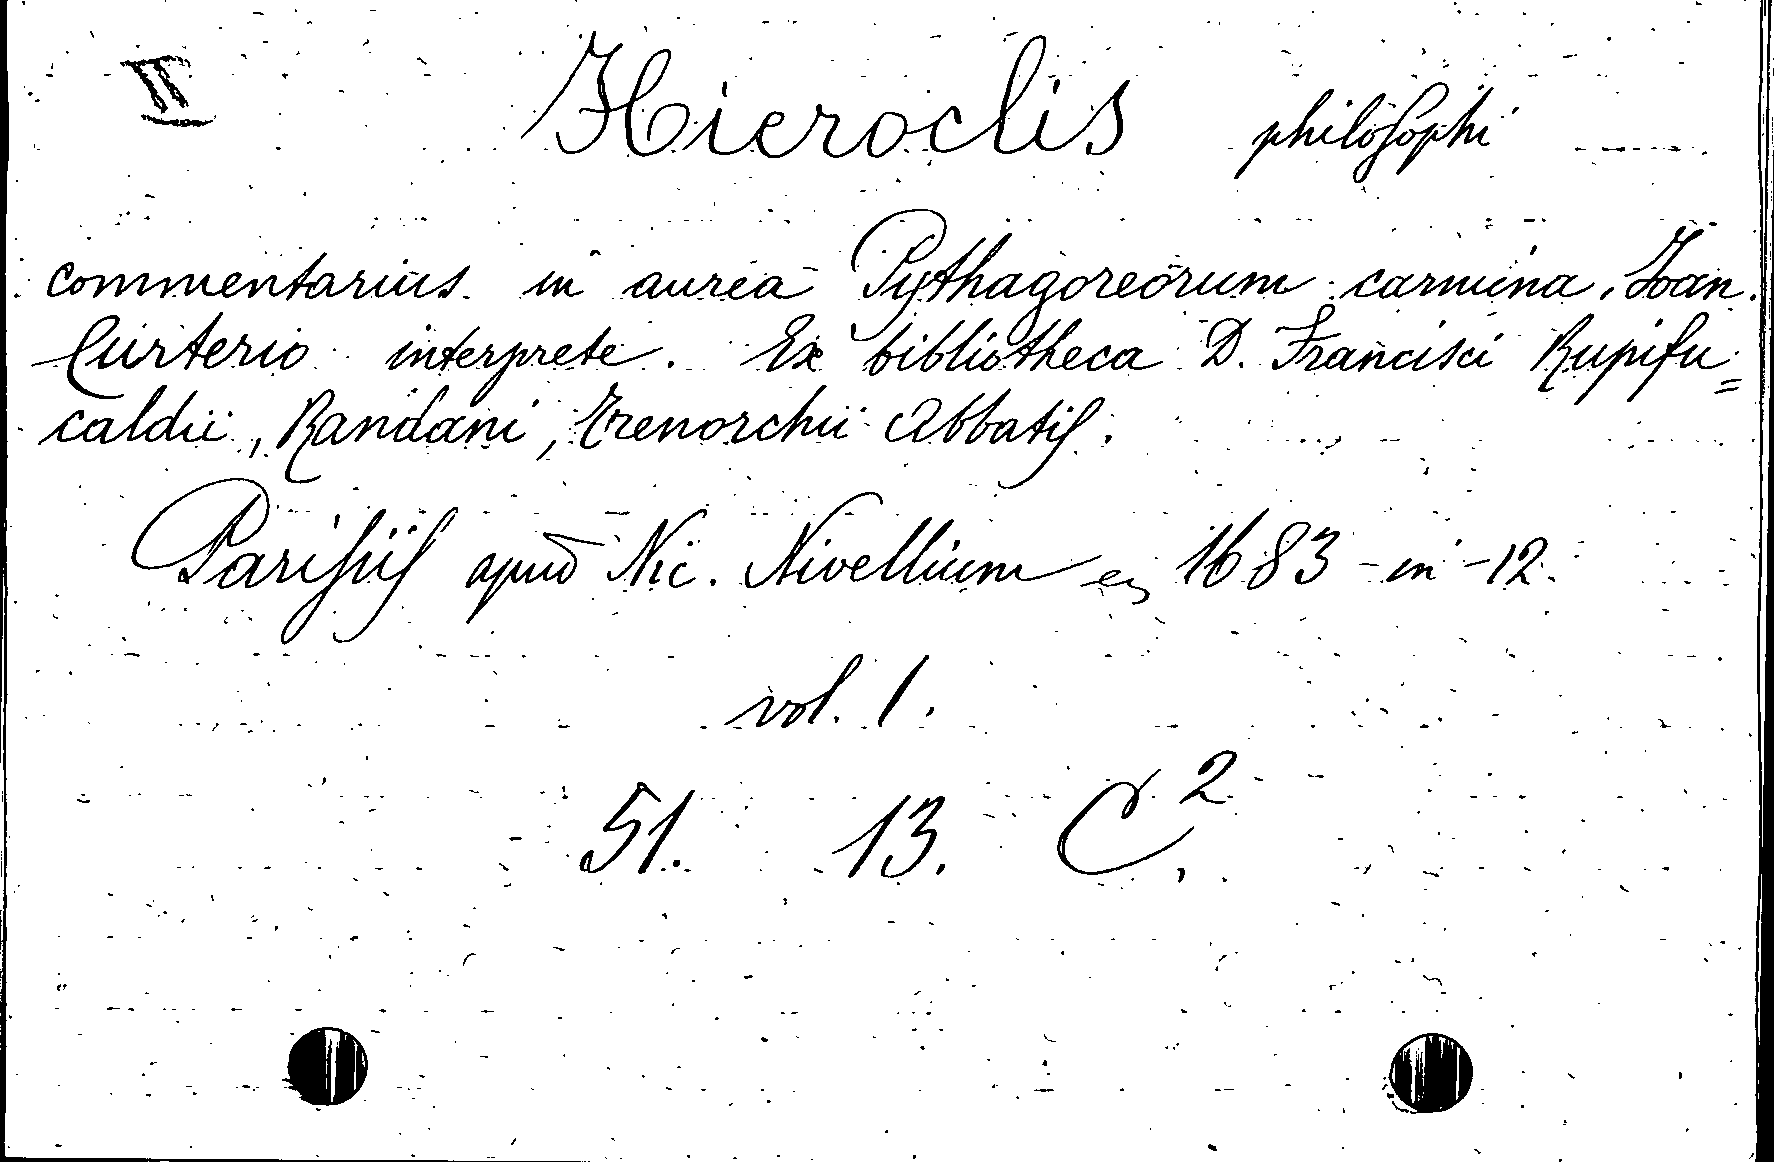 II Hieroclis philosophi
commentarius in aurea Pythagoreorum carmina, Joan.
Curterio interprete. Ex bibliotheca D. Francisci Rupifu=
caldii, Randani, Trenorchii Abbatis.
Parisiis apud Nic. Nivellium en 1683 - in - 12.
vol. 1.
51. 13. C².